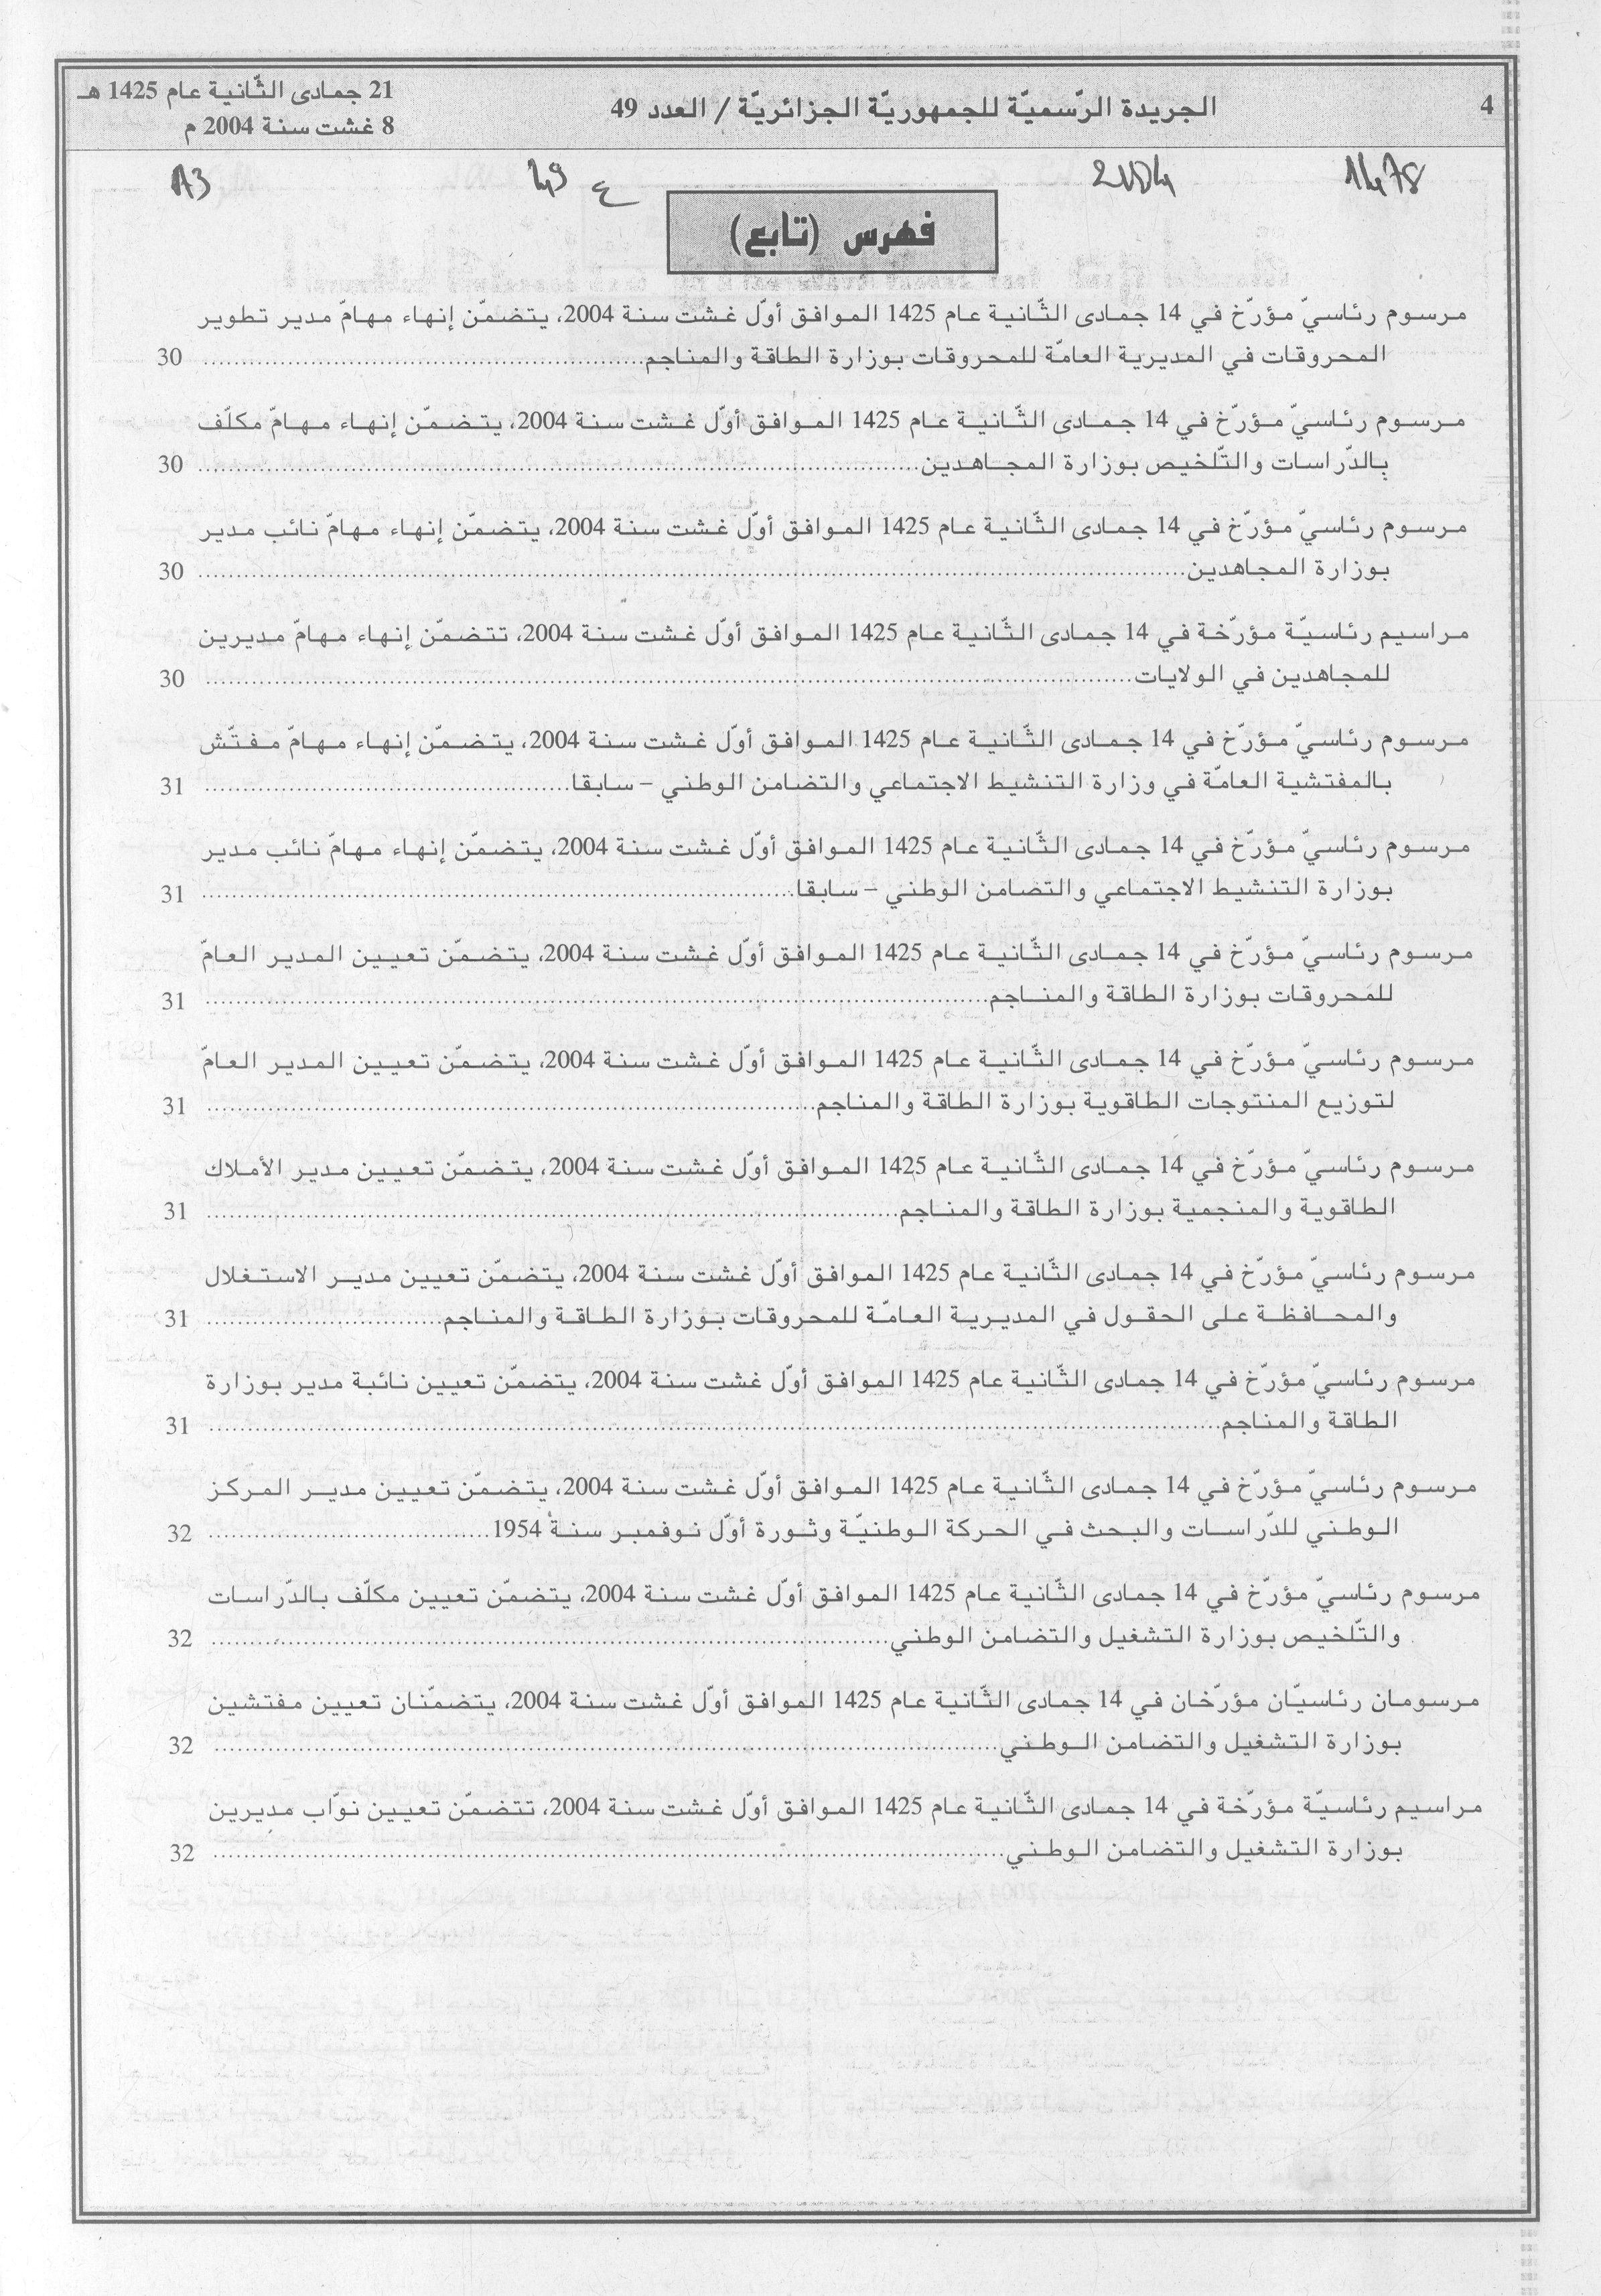 4
الجريدة الرّسميّة للجمهوريّة الجزائريّة / العدد 49
21 جمادى الثّانية عام 1425 هـ
8 غشت سنة 2004 م
1478
2004
49 ع
A3
فهرس (تابع)
مرسوم رئاسيّ مؤرّخ في 14 جمادى الثّانية عام 1425 الموافق أوّل غشت سنة 2004، يتضمّن إنهاء مهامّ مدير تطوير
المحروقات في المديرية العامّة للمحروقات بوزارة الطاقة والمناجم ........ 30
مرسوم رئاسيّ مؤرّخ في 14 جمادى الثّانية عام 1425 الموافق أوّل غشت سنة 2004، يتضمّن إنهاء مهامّ مكلّف
بالدّراسات والتّلخيص بوزارة المجاهدين ........ 30
مرسوم رئاسيّ مؤرّخ في 14 جمادى الثّانية عام 1425 الموافق أوّل غشت سنة 2004، يتضمّن إنهاء مهامّ نائب مدير
بوزارة المجاهدين ........ 30
مراسيم رئاسيّة مؤرّخة في 14 جمادى الثّانية عام 1425 الموافق أوّل غشت سنة 2004، تتضمّن إنهاء مهامّ مديرين
للمجاهدين في الولايات ........ 30
مرسوم رئاسيّ مؤرّخ في 14 جمادى الثّانية عام 1425 الموافق أوّل غشت سنة 2004، يتضمّن إنهاء مهامّ مفتّش
بالمفتشية العامّة في وزارة التنشيط الاجتماعي والتضامن الوطني – سابقا ........ 31
مرسوم رئاسيّ مؤرّخ في 14 جمادى الثّانية عام 1425 الموافق أوّل غشت سنة 2004، يتضمّن إنهاء مهامّ نائب مدير
بوزارة التنشيط الاجتماعي والتضامن الوطني – سابقا ........ 31
مرسوم رئاسيّ مؤرّخ في 14 جمادى الثّانية عام 1425 الموافق أوّل غشت سنة 2004، يتضمّن تعيين المدير العامّ
للمحروقات بوزارة الطاقة والمناجم ........ 31
مرسوم رئاسيّ مؤرّخ في 14 جمادى الثّانية عام 1425 الموافق أوّل غشت سنة 2004، يتضمّن تعيين المدير العامّ
لتوزيع المنتوجات الطاقوية بوزارة الطاقة والمناجم ........ 31
مرسوم رئاسيّ مؤرّخ في 14 جمادى الثّانية عام 1425 الموافق أوّل غشت سنة 2004، يتضمّن تعيين مدير الأملاك
الطاقوية والمنجمية بوزارة الطاقة والمناجم ........ 31
مرسوم رئاسيّ مؤرّخ في 14 جمادى الثّانية عام 1425 الموافق أوّل غشت سنة 2004، يتضمّن تعيين مدير الاستغلال
والمحافظة على الحقول في المديرية العامّة للمحروقات بوزارة الطاقة والمناجم ........ 31
مرسوم رئاسيّ مؤرّخ في 14 جمادى الثّانية عام 1425 الموافق أوّل غشت سنة 2004، يتضمّن تعيين نائبة مدير بوزارة
الطاقة والمناجم ........ 31
مرسوم رئاسيّ مؤرّخ في 14 جمادى الثّانية عام 1425 الموافق أوّل غشت سنة 2004، يتضمّن تعيين مدير المركز
الوطني للدّراسات والبحث في الحركة الوطنيّة وثورة أوّل نوفمبر سنة 1954 ........ 32
مرسوم رئاسيّ مؤرّخ في 14 جمادى الثّانية عام 1425 الموافق أوّل غشت سنة 2004، يتضمّن تعيين مكلّف بالدّراسات
والتّلخيص بوزارة التشغيل والتضامن الوطني ........ 32
مرسومان رئاسيّان مؤرّخان في 14 جمادى الثّانية عام 1425 الموافق أوّل غشت سنة 2004، يتضمّنان تعيين مفتشين
بوزارة التشغيل والتضامن الوطني ........ 32
مراسيم رئاسيّة مؤرّخة في 14 جمادى الثّانية عام 1425 الموافق أوّل غشت سنة 2004، تتضمّن تعيين نوّاب مديرين
بوزارة التشغيل والتضامن الوطني ........ 32